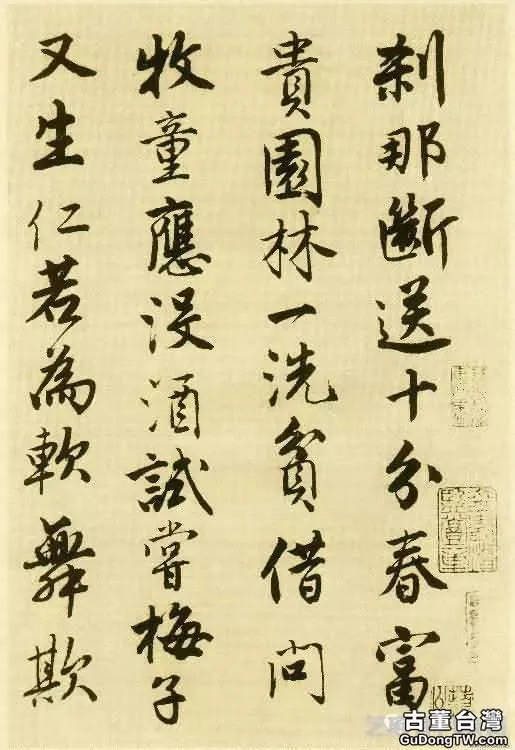 刹那斷送十分春富
貴園林一洗貧借问
牧童應没酒試嘗梅子
又生仁若為軟舞欺
古董台灣
GuDongTW.com